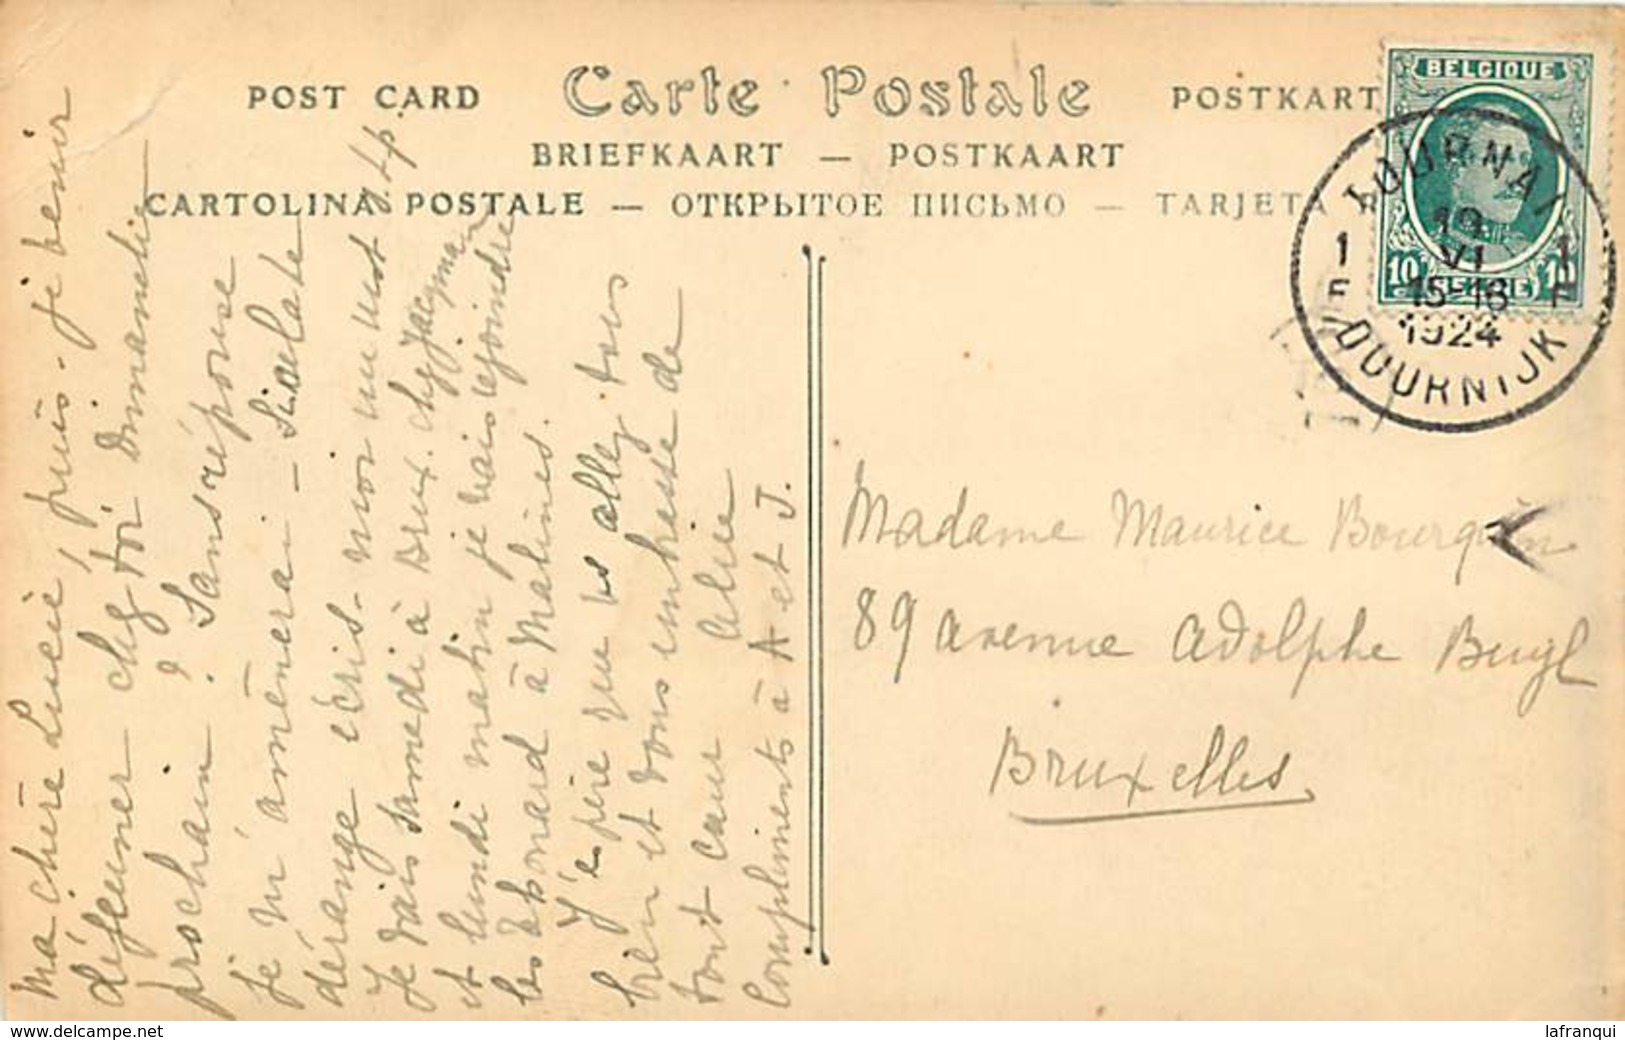 POST CARD Carte Postale POSTKART
BRIEFKAART — POSTKAART
CARTOLINA POSTALE — ОТКРЫТОЕ ПИСЬМО — TARJETA
BELGIQUE
10 BELGIE 10
TOURNAI
1 19 1
VI
E 15-16 E
1924
DOORNIJK
Ma chère Lucie, puis-je venir
déjeuner chez toi dimanche
prochain ? Sans réponse
je m'amènerai - Si cela te
dérange écris-moi un mot
Je vais samedi à Brux. chez
et lundi matin je vais rejoindre
les à Malines.
J'espère que vs allez tous
bien et vous embrasse de
tout cœur Alice
Compliments à A et J.
Madame Maurice Bourquin
89 avenue Adolphe Buyl
Bruxelles
www.delcampe.net
lafranqui